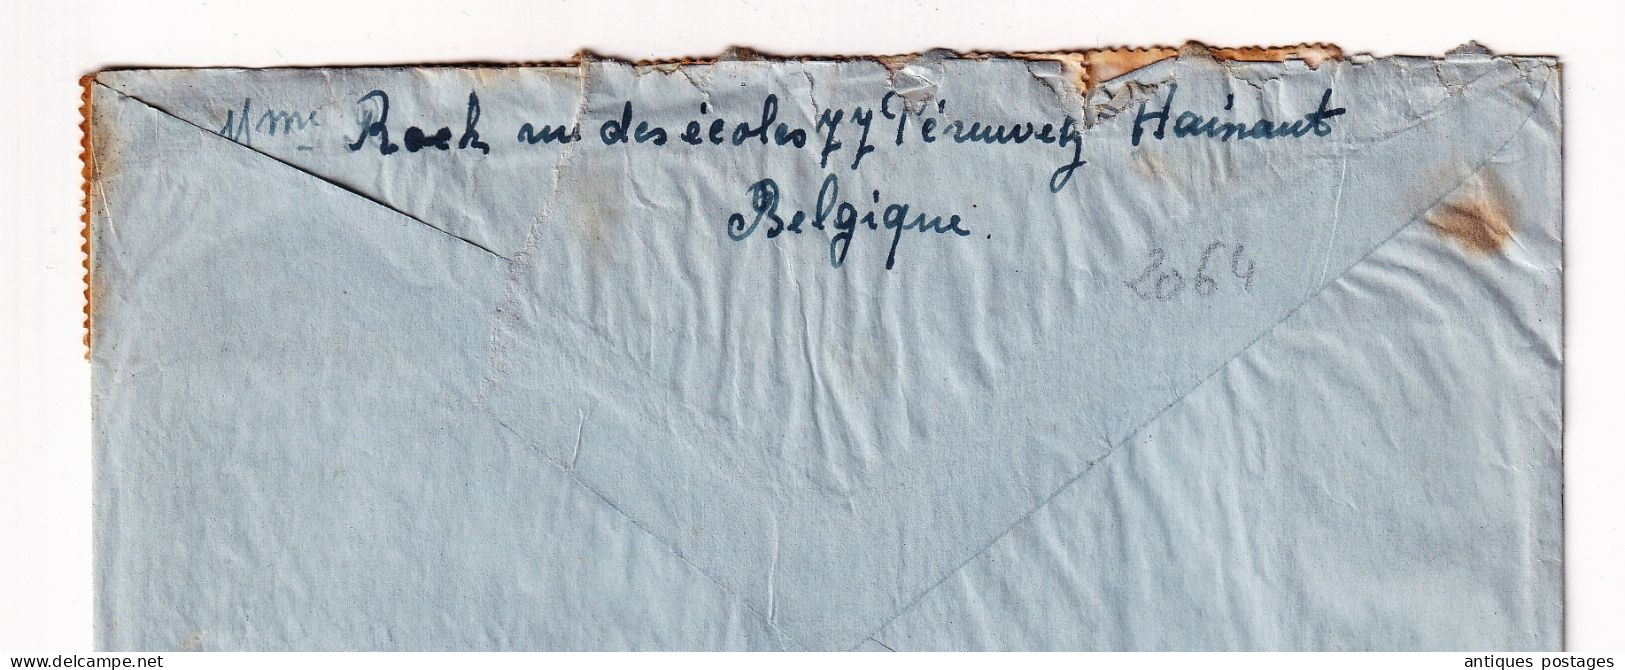 Mme Roch rue des écoles 77 Péruwelz Hainaut
Belgique.
2064
antiques postages